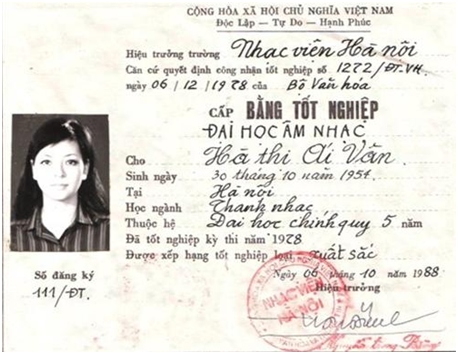 CỘNG HÒA XÃ HỘI CHỦ NGHĨA VIỆT NAM
Độc Lập — Tự Do — Hạnh Phúc
Hiệu trưởng trường Nhạc viện Hà nội
Căn cứ quyết định công nhận tốt nghiệp số 1272/ĐT.VH.
ngày 06/12/1978 của Bộ Văn hóa
CẤP BẰNG TỐT NGHIỆP
ĐẠI HỌC ÂM NHẠC
Cho Hà thị Ái Vân
Sinh ngày 30 tháng 10 năm 1954.
Tại Hà nội
Học ngành Thanh nhạc
Thuộc hệ Đại học chính quy 5 năm
Đã tốt nghiệp kỳ thi năm 1978
Được xếp hạng tốt nghiệp loại xuất sắc
Ngày 06 tháng 10 năm 1988
Hiệu trưởng
Số đăng ký
111/ĐT.
NHẠC VIỆN
HÀ NỘI